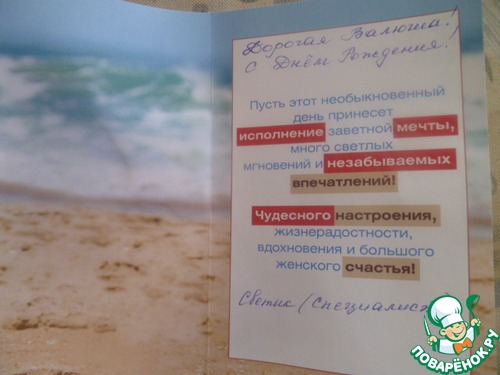 Дорогая Валюша!
С Днём Рождения!
Пусть этот необыкновенный
день принесет
исполнение заветной мечты,
много светлых
мгновений и незабываемых
впечатлений!
Чудесного настроения,
жизнерадостности,
вдохновения и большого
женского счастья!
Светик (специалист)
ПОВАРЁНОК.РУ